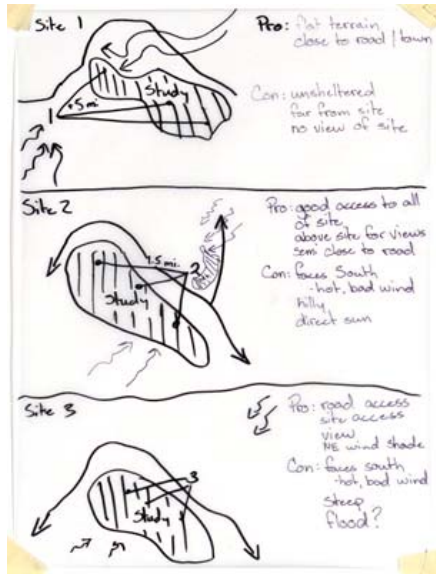 Site 1
Pro: flat terrain
close to road / town
Con: unsheltered
far from site
no view of site
Study
.5 mi
1
Site 2
Pro: good access to all
of site
above site for views
semi close to road
Con: faces South
-hot, bad wind
hilly
direct sun
1.5 mi.
2
Study
Site 3
Pro: road access
site access
view
NE wind shade
Con: faces south
-hot, bad wind
steep
flood?
3
Study